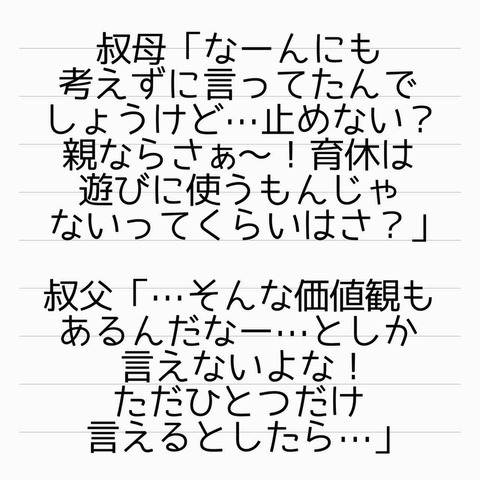 叔母「なーんにも
考えずに言ってたんで
しょうけど…止めない？
親ならさぁ〜！育休は
遊びに使うもんじゃ
ないってくらいはさ？」
叔父「…そんな価値観も
あるんだなー…としか
言えないよな！
ただひとつだけ
言えるとしたら…」